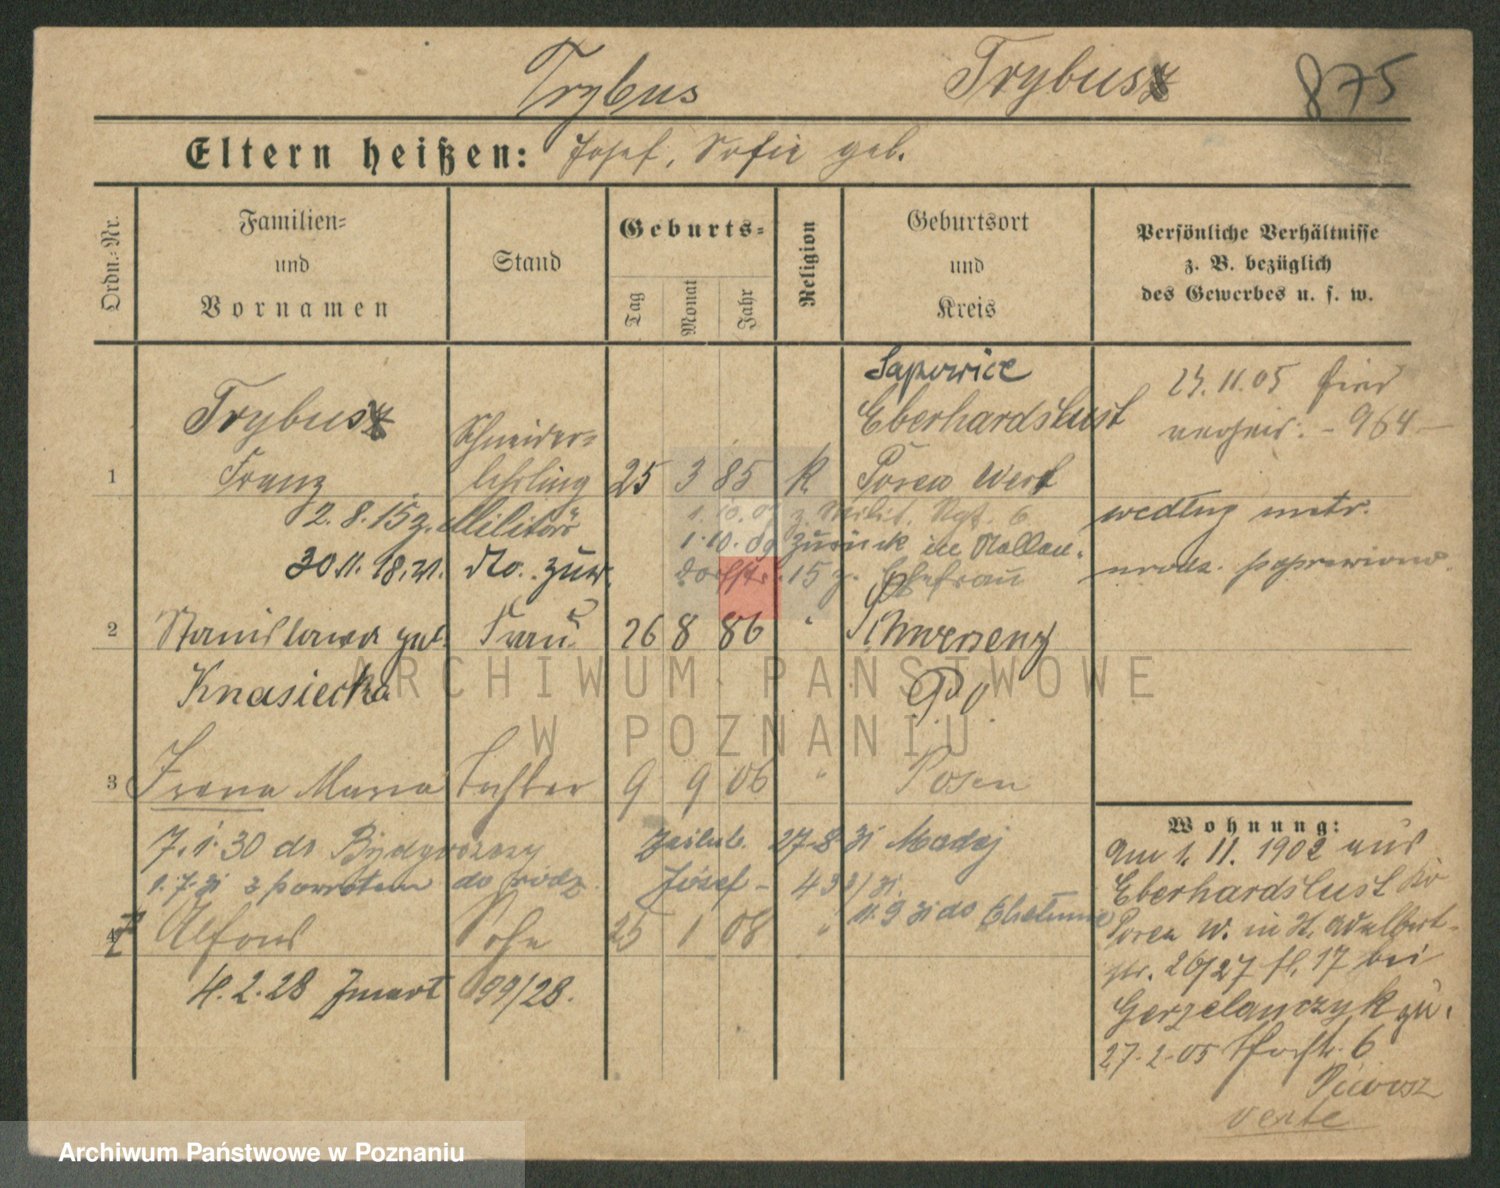 Trybus Trybusz 875
Eltern heißen: Josef, Sofie geb.
Ordn.-Nr.
Familien=
und
Vornamen
Stand
Geburts=
Tag
Monat
Jahr
Religion
Geburtsort
und
Kreis
Persönliche Verhältnisse
z. B. bezüglich
des Gewerbes u. s. w.
Sapowice
Trybusz Schneider= Eberhardslust 25.11.05
1 Franz lehrling 25 3 85 K Posen West - 964 -
2.8.15 z. Militär 1.10.07 z. Rgt. 6 według metr.
30.11.18. zur. 1.10.09 zurück in urodz.
15 z. Ehefrau
2 Stanislawa geb. Frau 26 8 86 " Schwersenz
Knasiecka Po
3 Irena Maria Tochter 9 9 06 " Posen
7.1.30 do Bydgoszczy 27.8.31 Madaj
1.7.31 z powrotem do rodz. Józef - 31
11.9.31 do
4 Alfons Sohn 25 1 08 "
4.2.28 Zmarł 99/28.
Wohnung:
Am 1. 11. 1902 aus
Eberhardslust
Posen W. in St. Adalbert-
str. 26/27 17 bei
Gerzelanczyk zu.
27.2.05 6
verte
ARCHIWUM PAŃSTWOWE
W POZNANIU
Archiwum Państwowe w Poznaniu